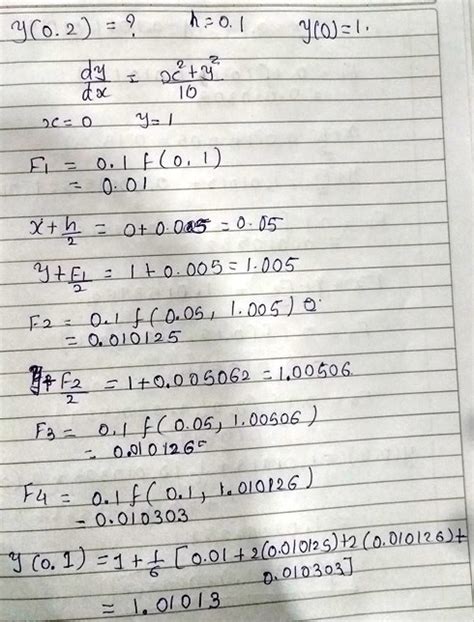 y(0.2) = ? h = 0.1 y(0)=1.
dy/dx = x²+y²/10
x=0 y=1
F1 = 0.1 f(0,1)
= 0.01
x+h/2 = 0+0.005 = 0.05
y+F1/2 = 1+0.005 = 1.005
F2 = 0.1 f(0.05, 1.005)
= 0.010125
y+F2/2 = 1+0.005062 = 1.00506
F3 = 0.1 f(0.05, 1.00506)
= 0.010126
F4 = 0.1 f(0.1, 1.010126)
= 0.010303
y(0.1) = 1+1/6 [0.01+2(0.010125)+2(0.010126)+
0.010303]
= 1.01013